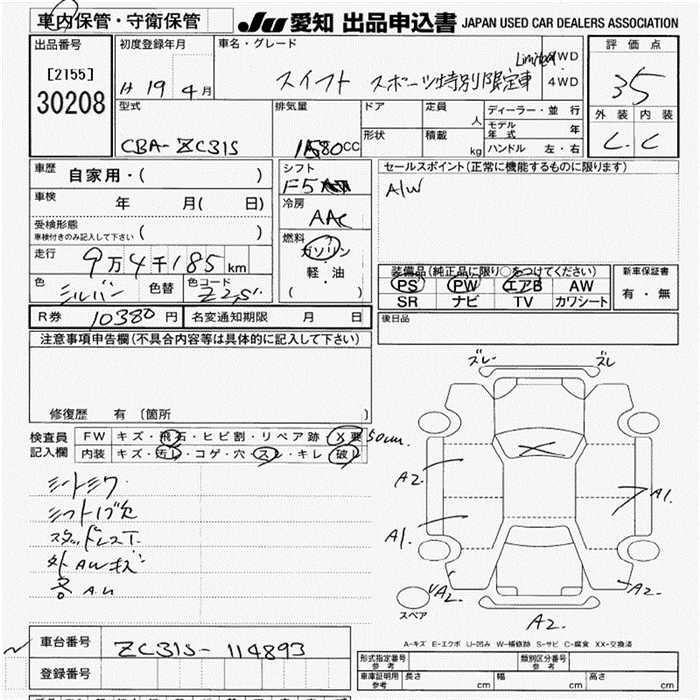 車内保管・守衛保管
JU 愛知 出品申込書 JAPAN USED CAR DEALERS ASSOCIATION
出品番号
[2155]
30208
初度登録年月
H 19年 4月
車名・グレード
スイフト スポーツ特別限定車
Limited
WD
4WD
評価点
35
外装 内装
C C
型式
CBA-ZC31S
排気量
CC
ドア
形状
定員
人
積載
kg
ディーラー・並行
モデル年式
年
ハンドル 左・右
車歴
自家用・( )
車検
年 月( 日)
受検形態
車検付きのみ記入して下さい ( )
走行
9万4千185km
色
シルバー
色替
色コード
Z2S
シフト
F5
冷房
AAC
燃料
ガソリン
軽・油
( )
セールスポイント(正常に機能するものに限ります)
A/W
装備品(純正品に限り○をつけてください)
PS PW エアB AW
SR ナビ TV カワシート
新車保証書
有・無
後日品
R券 10380円
名変通知期限 月 日
注意事項申告欄(不具合内容等は具体的に記入して下さい)
修復歴 有 〔箇所 〕
検査員
記入欄
FW キズ・飛石・ヒビ割・リペア跡 X要 50cm
内装 キズ・汚レ・コゲ・穴・スレ・キレ・破レ
シートシワ
スタッドレスT.
外AWキズ
ズレ
ズレ
A2
A1
A1.
A2
A2
A2
スペア
A-キズ E-エクボ U-凹み W-補修跡 S-サビ C-腐食 XX-交換済
車台番号
ZC31S-114893
登録番号
形式指定番号
参考
類別区分番号
参考
車庫証明用
参考
長さ cm 幅 cm 高さ cm